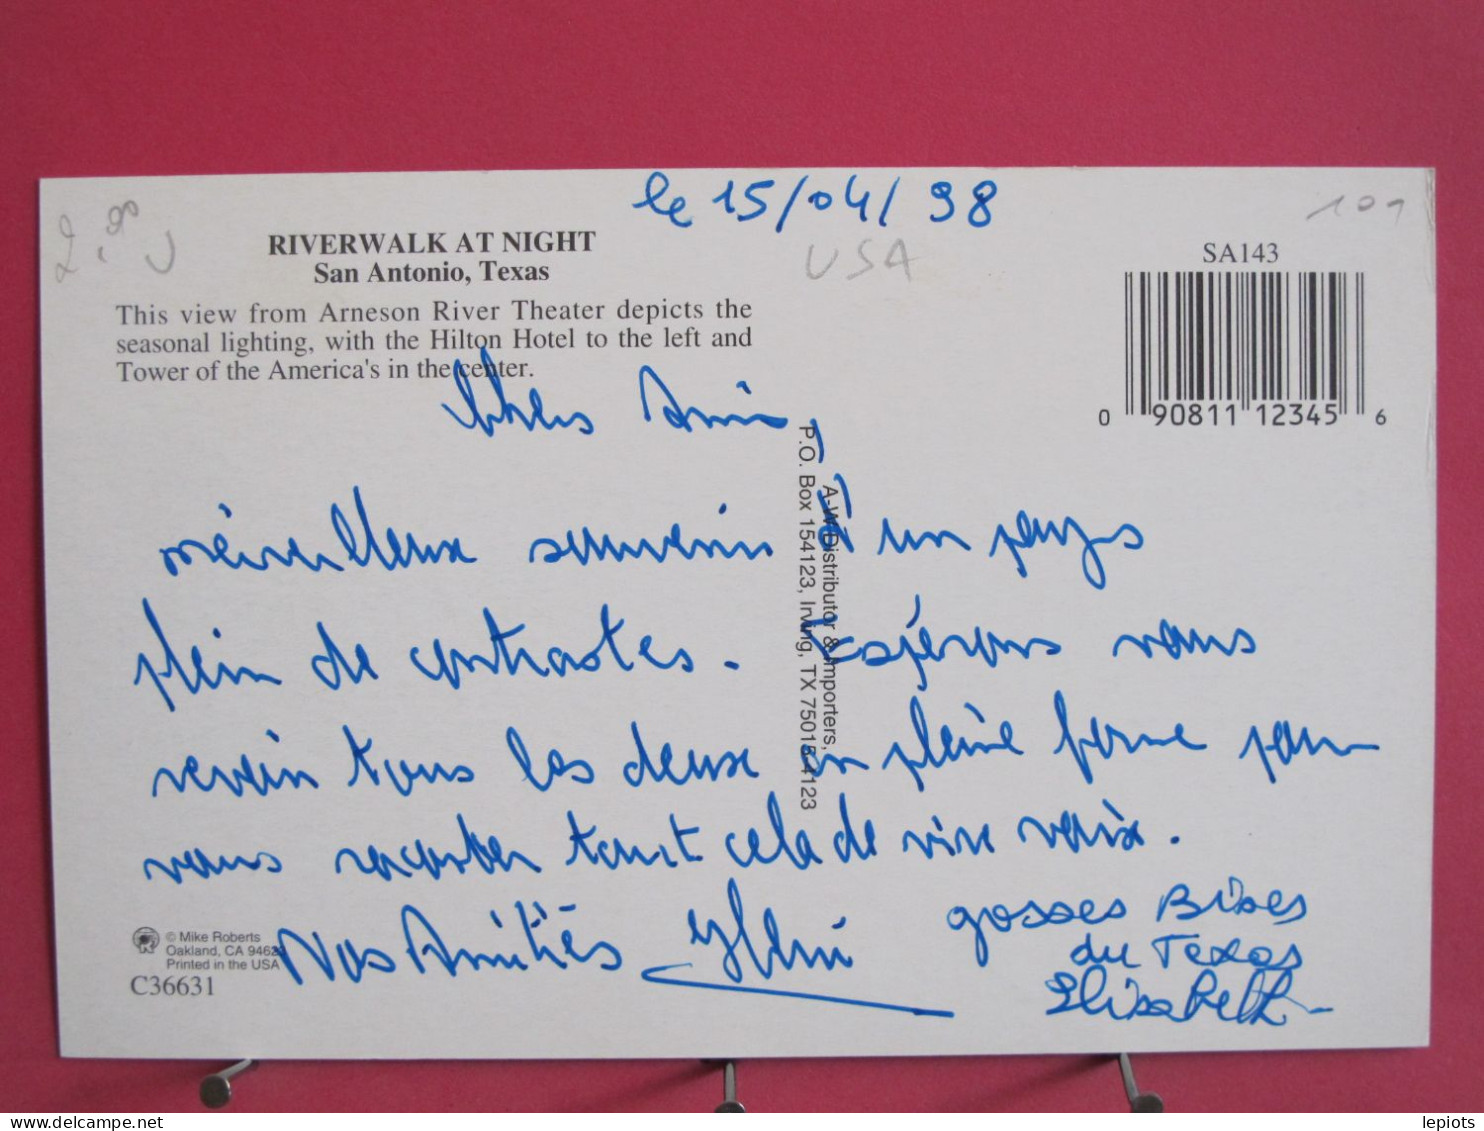 le 15/04/98
2.90
USA
101
RIVERWALK AT NIGHT
San Antonio, Texas
This view from Arneson River Theater depicts the
seasonal lighting, with the Hilton Hotel to the left and
Tower of the America's in the center.
SA143
0 90811 12345 6
A-W Distributor & Importers,
P.O. Box 154123, Irving, TX 75015-4123
Chers Amis,
merveilleux souvenir d' un pays
plein de contrastes. Espérons vous
revoir tous les deux en pleine forme pour
vous raconter tout cela de vive voix.
Nos Amitiés
gosses Bises
du Texas
Elisabeth
© Mike Roberts
Oakland, CA 94623
Printed in the USA
C36631
lepiots